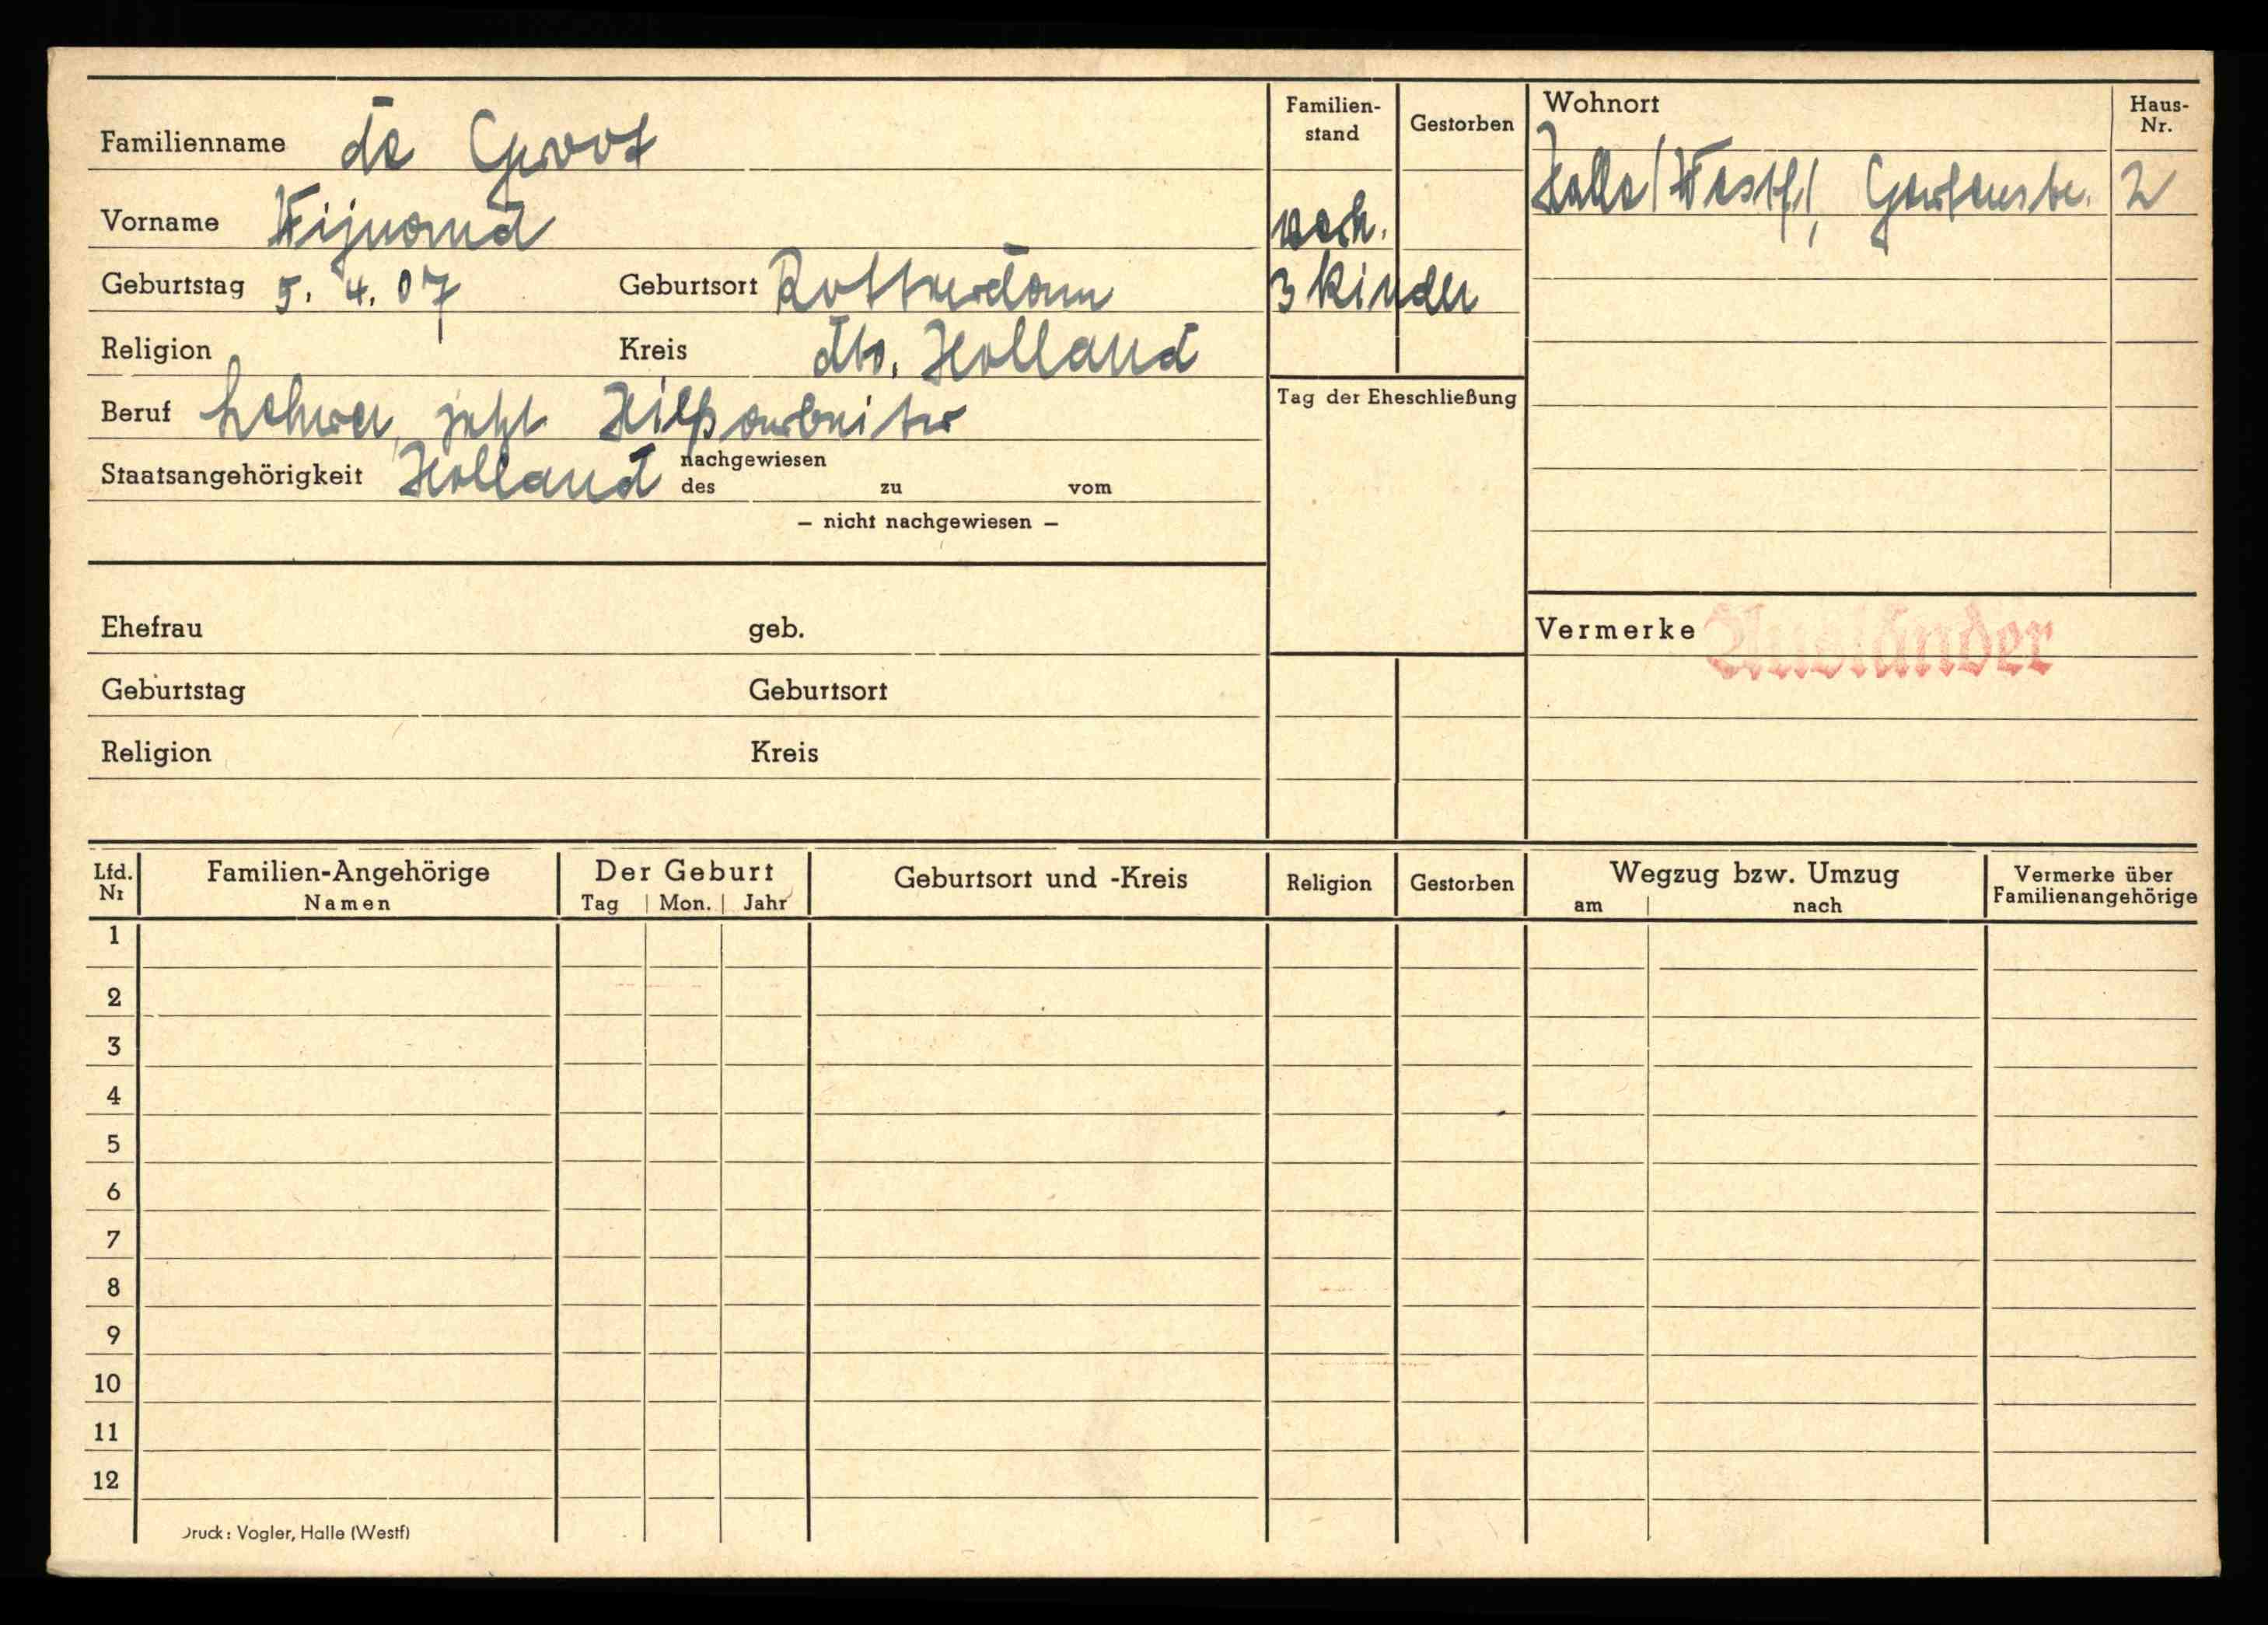 Familienname de Groot
Vorname Wijnand
Geburtstag 5. 4. 07 Geburtsort Rotterdam
Religion Kreis dto. Holland
Beruf Lehrer, jetzt Hilfsarbeiter
Staatsangehörigkeit Holland nachgewiesen
des zu vom
– nicht nachgewiesen –
Familien-
stand
verh.
3 Kinder
Gestorben
Tag der Eheschließung
Wohnort Haus-
Nr.
Halle/Westf/, Gartenstr. 2
Ehefrau geb.
Geburtstag Geburtsort
Religion Kreis
Vermerke Ausländer
Lfd.
Nr
Familien-Angehörige
Namen
Der Geburt
Tag Mon. Jahr
Geburtsort und -Kreis
Religion
Gestorben
Wegzug bzw. Umzug
am nach
Vermerke über
Familienangehörige
1
2
3
4
5
6
7
8
9
10
11
12
Druck: Vogler, Halle (Westf)